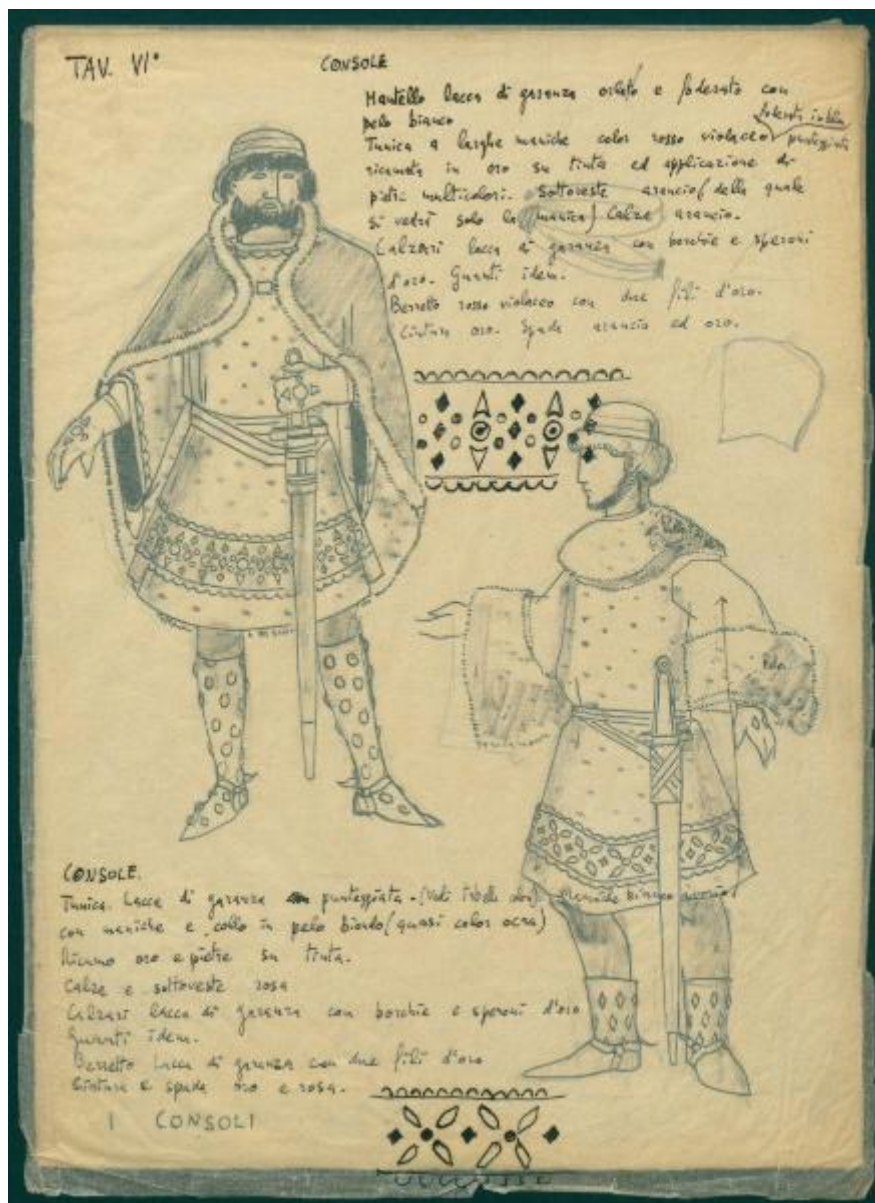 TAV. VIª
CONSOLE
Mantello lacca di garanza orlato e foderato con
pelo bianco
foderata in blu
Tunica a larghe maniche color rosso violaceo punteggiata
ricamata in oro su tinta ed applicazione di
pietre multicolori. Sottoveste arancio (della quale
si vedrà solo la manica) Calze arancio.
Calzari lacca di garanza con borchie e speroni
d'oro. Guanti idem.
Berretto rosso violaceo con due fili d'oro.
Cintura oro. Spada arancio ed oro.
Pelo
CONSOLE.
Tunica Lacca di garanza punteggiata - (Vedi tabella colori). Maniche bianco avorio
con maniche e collo in pelo biondo (quasi color ocra)
Ricamo oro e pietre su tinta.
Calze e sottoveste rosa
Calzari lacca di garanza con borchie e speroni d'oro
Guanti idem.
Berretto Lacca di garanza con due fili d'oro
Cintura e spada oro e rosa.
I CONSOLI